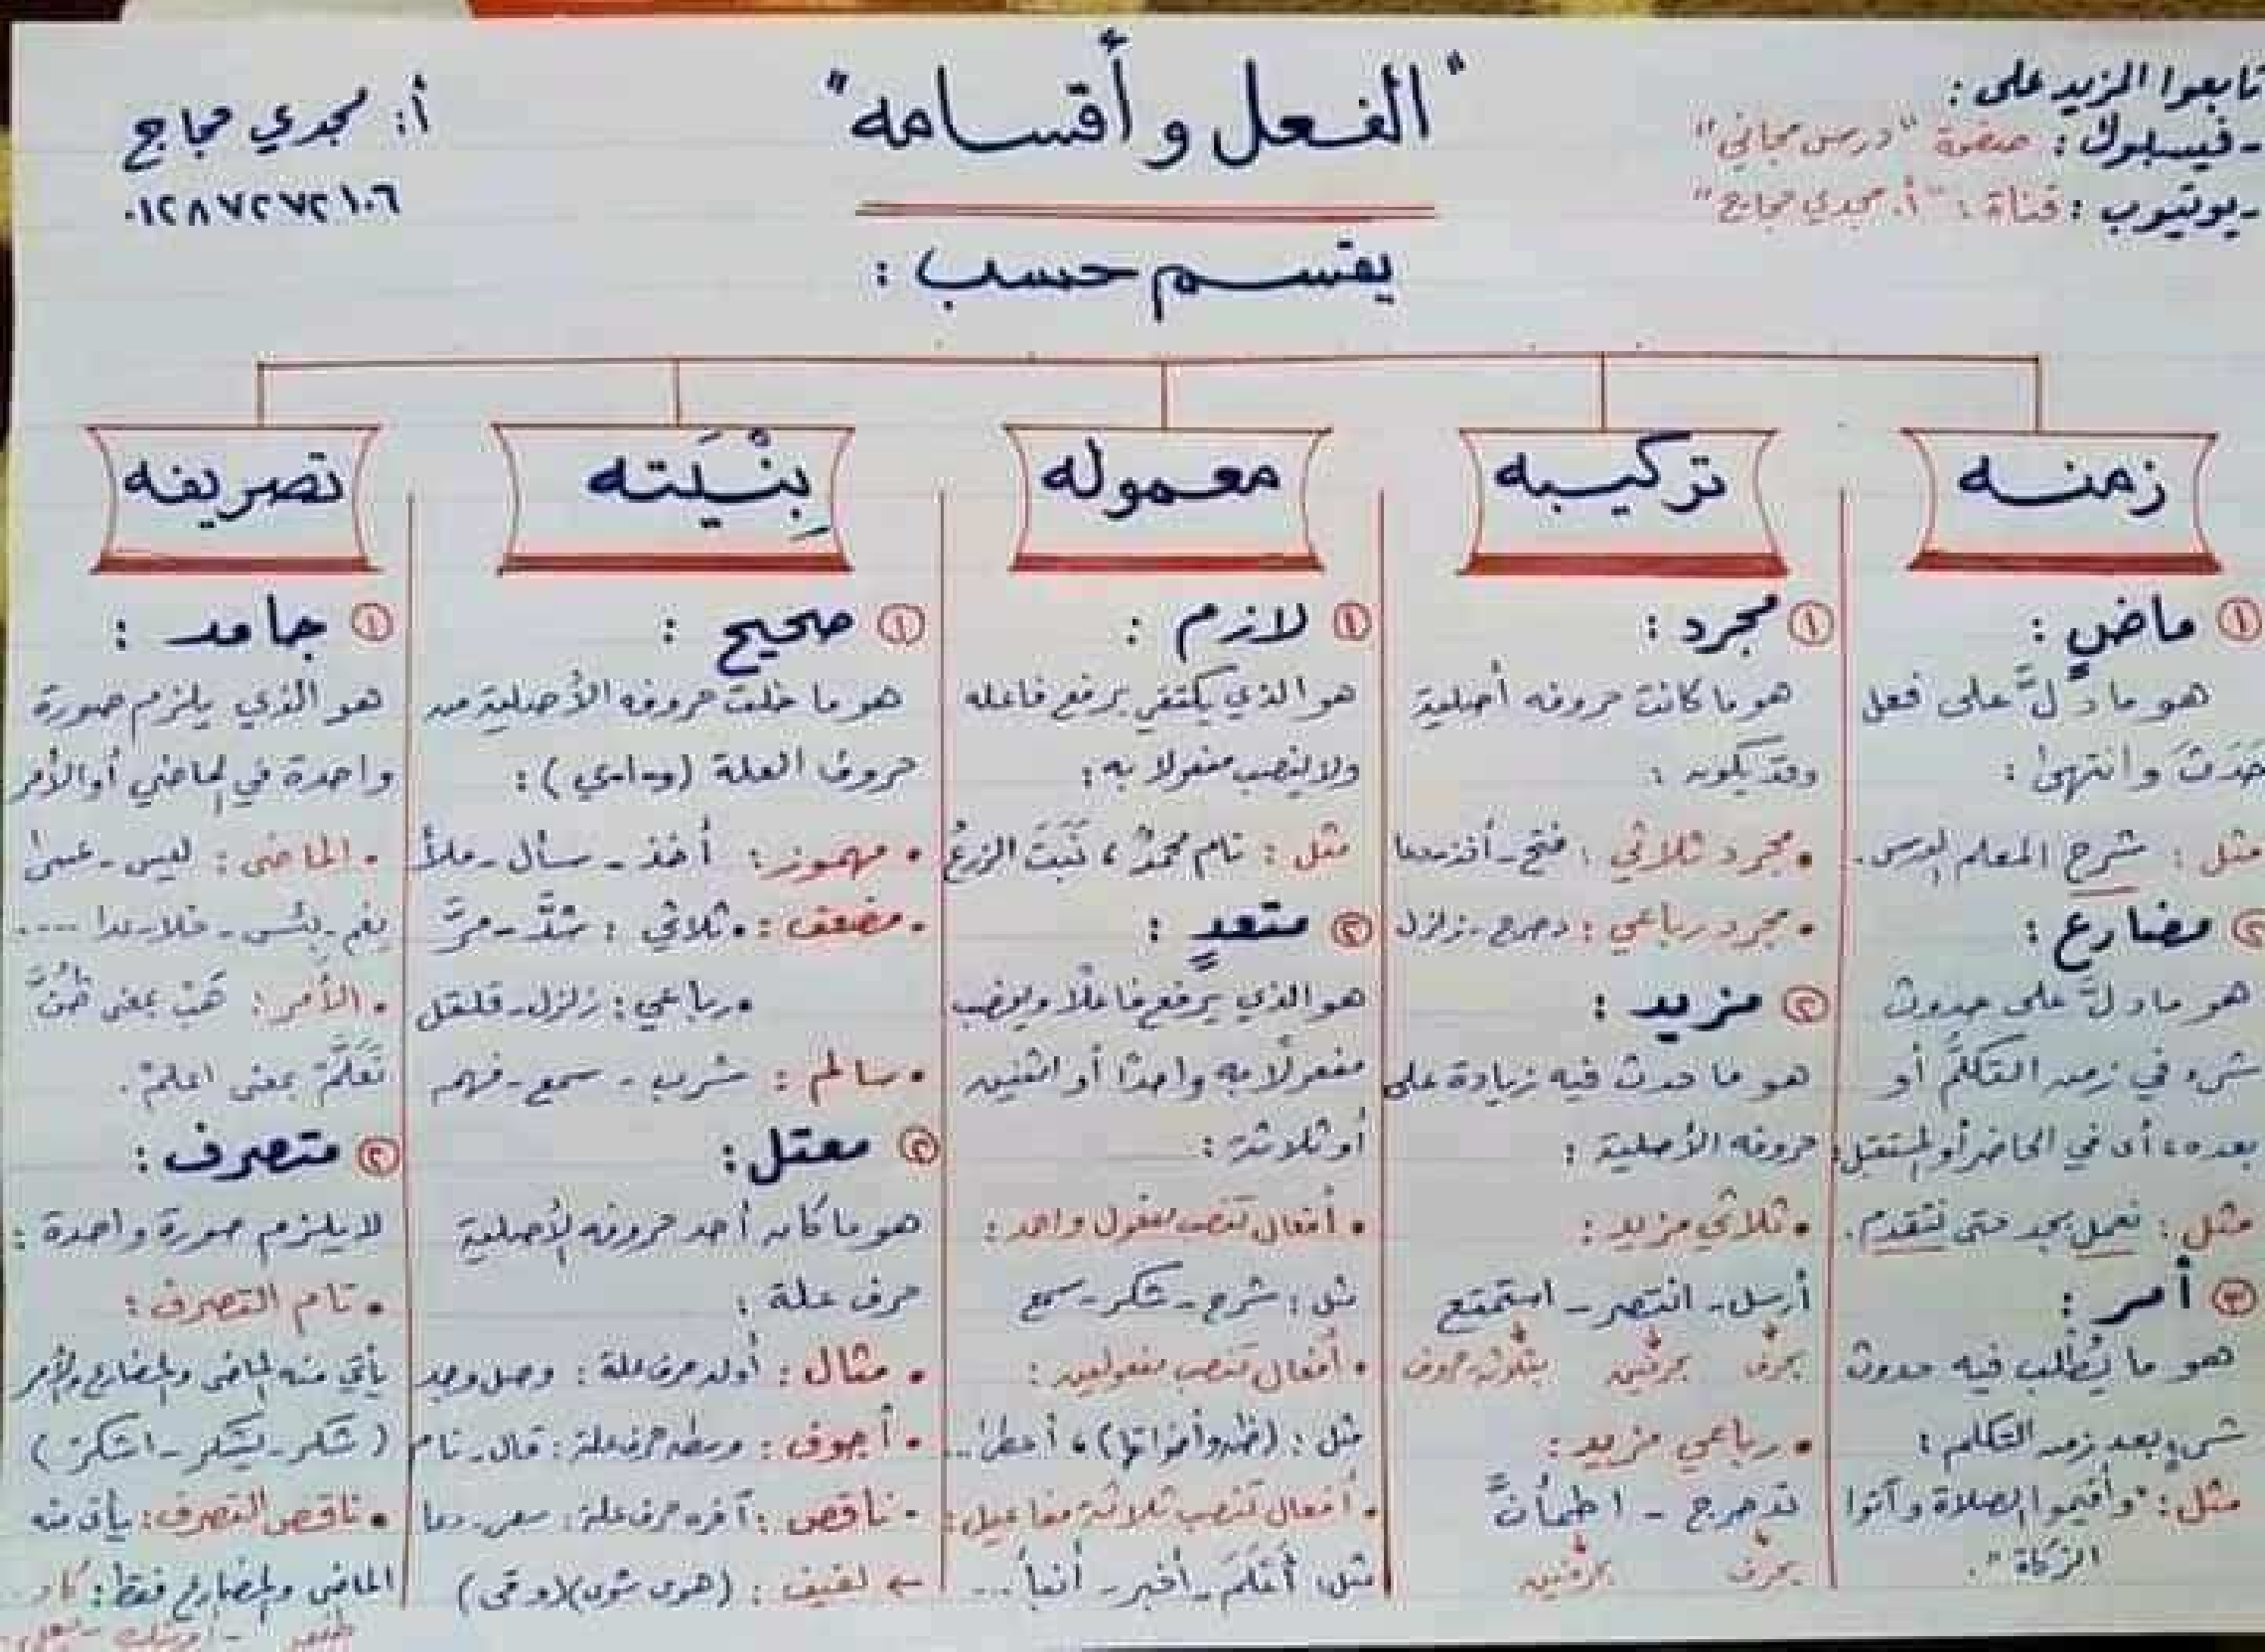 تابعوا المزيد على :
- فيسبوك : صفحة "درس مجاني"
- يوتيوب : قناة : "أ. مجدي حجاج"
"الفعل وأقسامه"
أ: مجدي حجاج
٠١٢٨٧٢٧٢١٠٦
يقسم حسب :
زمنه
١ ماضٍ :
هو ما دلَّ على فعل
حَدَثَ وانتهى :
مثل : شرح المعلم الدرس.
٢ مضارع :
هو ما دلَّ على حدوث
شيء في زمن التكلُّم أو
بعده، أي في الحاضر أو المستقبل :
مثل : نعمل بجد حتى نتقدم.
٣ أمر :
هو ما يُطْلب فيه حدوث
شيءٍ بعد زمن التكلم :
مثل : "وأقيموا الصلاة وآتوا
الزكاة".
تركيبه
١ مجرد :
هو ما كانت حروفه أصلية
وقد يكون :
• مجرد ثلاثي : فتح - أخذ - دعا
• مجرد رباعي : دحرج - زلزل
٢ مزيد :
هو ما حدث فيه زيادة على
حروفه الأصلية :
• ثلاثي مزيد :
أرسل - انتصر - استمتع
بحرف بحرفين بثلاثة حروف
• رباعي مزيد :
تدحرج - اطمأنَّ
بحرف بحرفين
معموله
١ لازم :
هو الذي يكتفي برفع فاعله
ولا ينصب مفعولا به :
مثل : نام محمدٌ ، نَبَتَ الزرعُ
٢ متعدٍ :
هو الذي يرفع فاعلًا وينصب
مفعولًا به واحدًا أو اثنين
أو ثلاثة :
• أفعال تنصب مفعول واحد :
مثل : شرح - شكر - سمع
• أفعال تنصب مفعولين :
مثل : (ظن وأخواتها) ، أعطى ...
• أفعال تنصب ثلاثة مفاعيل :
مثل : أَعْلَمَ - أخبر - أنبأ ...
بِنْيَته
١ صحيح :
هو ما خلت حروفه الأصلية من
حروف العلة (و - ا - ي) :
• مهموز : أخذ - سأل - ملأ
• مضعف : • ثلاثي : شدَّ - مرَّ
• رباعي : زلزل - قلقل
• سالم : شرب - سمع - فهم
٢ معتل :
هو ما كان أحد حروفه الأصلية
حرف علة :
• مثال : أوله حرف علة : وصل وجد
• أجوف : وسطه حرف علة : قال - نام
• ناقص : آخره حرف علة : سعى - دعا
← لفيف : (هوى شوى) (وقى)
تصريفه
١ جامد :
هو الذي يلزم صورة
واحدة في الماضي أو الأمر
• الماضي : ليس - عسى
نِعْم - بِئْس - خلا - عدا ....
• الأمر : هَبْ بمعنى ظُنَّ
تَعَلَّمْ بمعنى اعلمْ.
٢ متصرف :
لا يلزم صورة واحدة :
• تام التصرف :
يأتي منه الماضي والمضارع والأمر
(شكر - يشكر - اشكرْ)
• ناقص التصرف : يأتي منه
الماضي والمضارع فقط : كاد